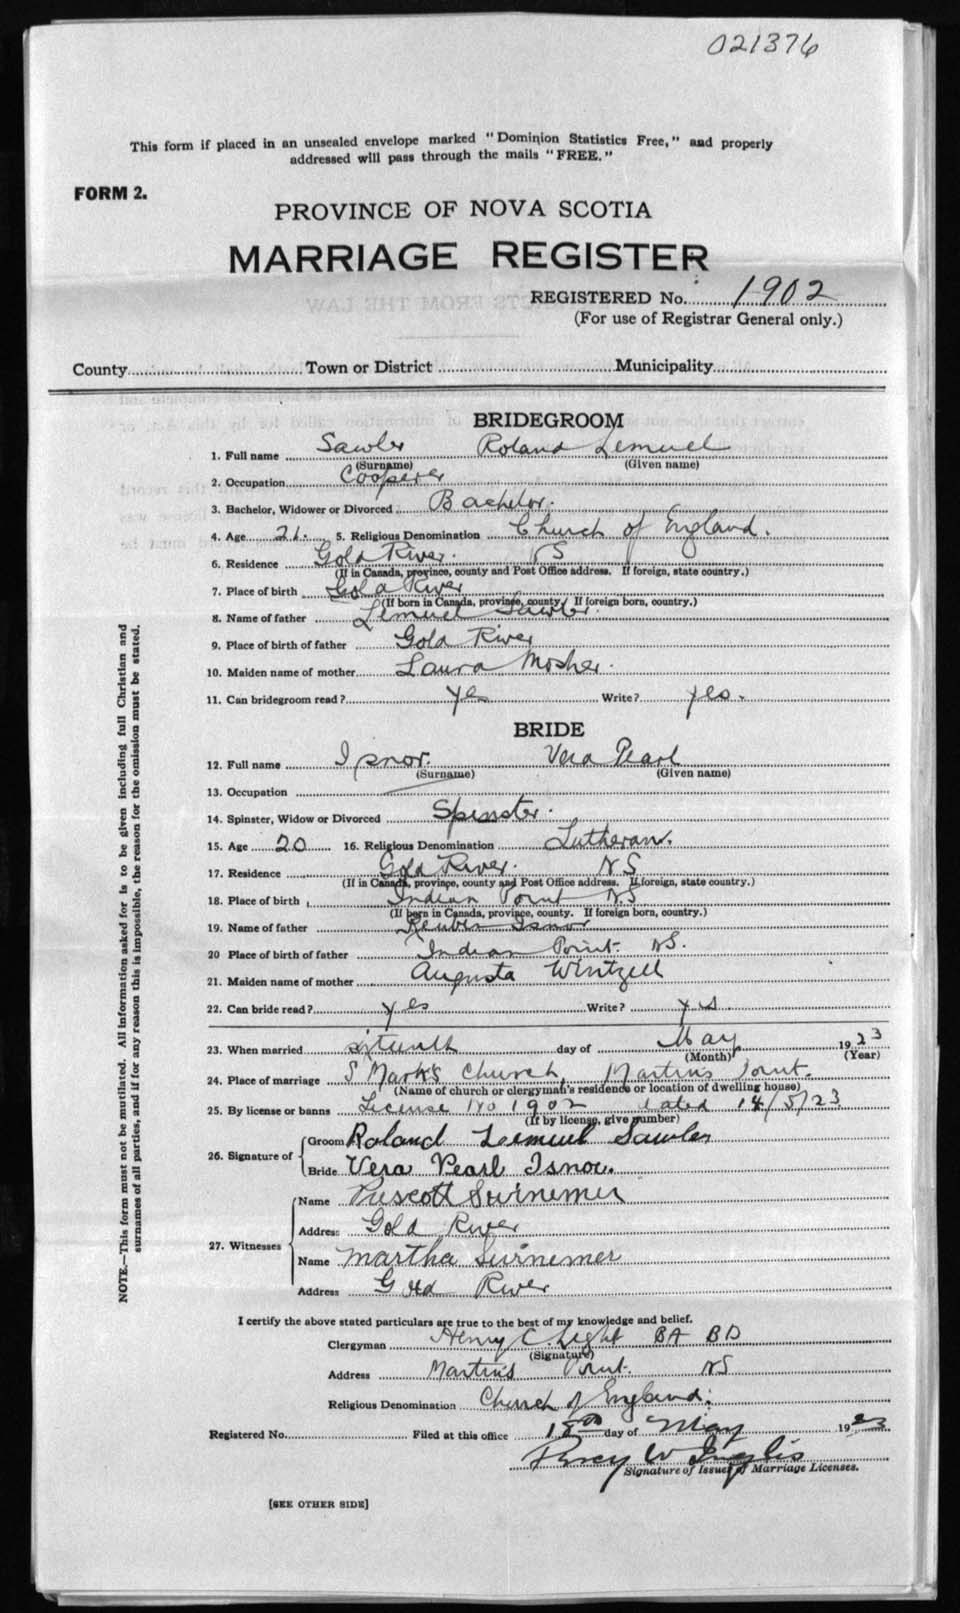 021376
This form if placed in an unsealed envelope marked "Dominion Statistics Free," and properly
addressed will pass through the mails "FREE."
FORM 2.
PROVINCE OF NOVA SCOTIA
MARRIAGE REGISTER
REGISTERED No. 1902
(For use of Registrar General only.)
County Town or District Municipality
BRIDEGROOM
1. Full name Sawler Roland Lemuel
(Surname) (Given name)
2. Occupation Cooperer
3. Bachelor, Widower or Divorced Bachelor.
4. Age 21. 5. Religious Denomination Church of England.
6. Residence Gold River. NS
(If in Canada, province, county and Post Office address. If foreign, state country.)
7. Place of birth Gold River
(If born in Canada, province, county. If foreign born, country.)
8. Name of father Lemuel Sawler.
9. Place of birth of father Gold River
10. Maiden name of mother Laura Mosher.
11. Can bridegroom read? yes Write? yes.
BRIDE
12. Full name Isnor. Vera Pearl
(Surname) (Given name)
13. Occupation
14. Spinster, Widow or Divorced Spinster.
15. Age 20 16. Religious Denomination Lutheran.
17. Residence Gold River. N.S
(If in Canada, province, county and Post Office address. If foreign, state country.)
18. Place of birth Indian Point N.S
(If born in Canada, province, county. If foreign born, country.)
19. Name of father Reuben Isnor
20 Place of birth of father Indian Point. NS.
21. Maiden name of mother Augusta Wintzell
22. Can bride read? yes Write? yes
23. When married sixteenth day of May 1923
(Month) (Year)
24. Place of marriage S Mark's Church, Martins Point.
(Name of church or clergyman's residence or location of dwelling house)
25. By license or banns License No 1902 dated 14/5/23
(If by license, give number)
26. Signature of Groom Roland Lemuel Sawler
Bride Vera Pearl Isnor.
27. Witnesses Name Prescott Swinemer
Address Gold River
Name Martha Swinemer
Address Gold River
I certify the above stated particulars are true to the best of my knowledge and belief.
Clergyman Henry C. Light BA BD
(Signature)
Address Martin's Point. NS
Religious Denomination Church of England.
Registered No. Filed at this office day of May 1923
Percy W Inglis
Signature of Issuer of Marriage Licenses.
[SEE OTHER SIDE]
NOTE.—This form must not be mutilated. All information asked for is to be given including full Christian and
surnames of all parties, and if for any reason this is impossible, the reason for the omission must be stated.